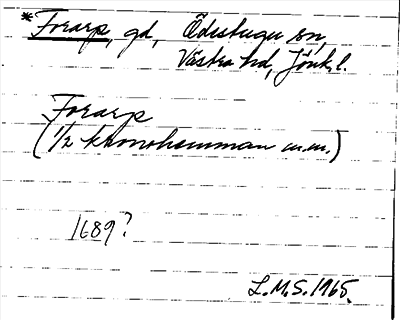 *Forarp, gd, Ödestugu sn,
Västra hd, Jönk. l.
Forarp
(1/2 kronohemman m.m.)
1689?
L.M.S. 1965.